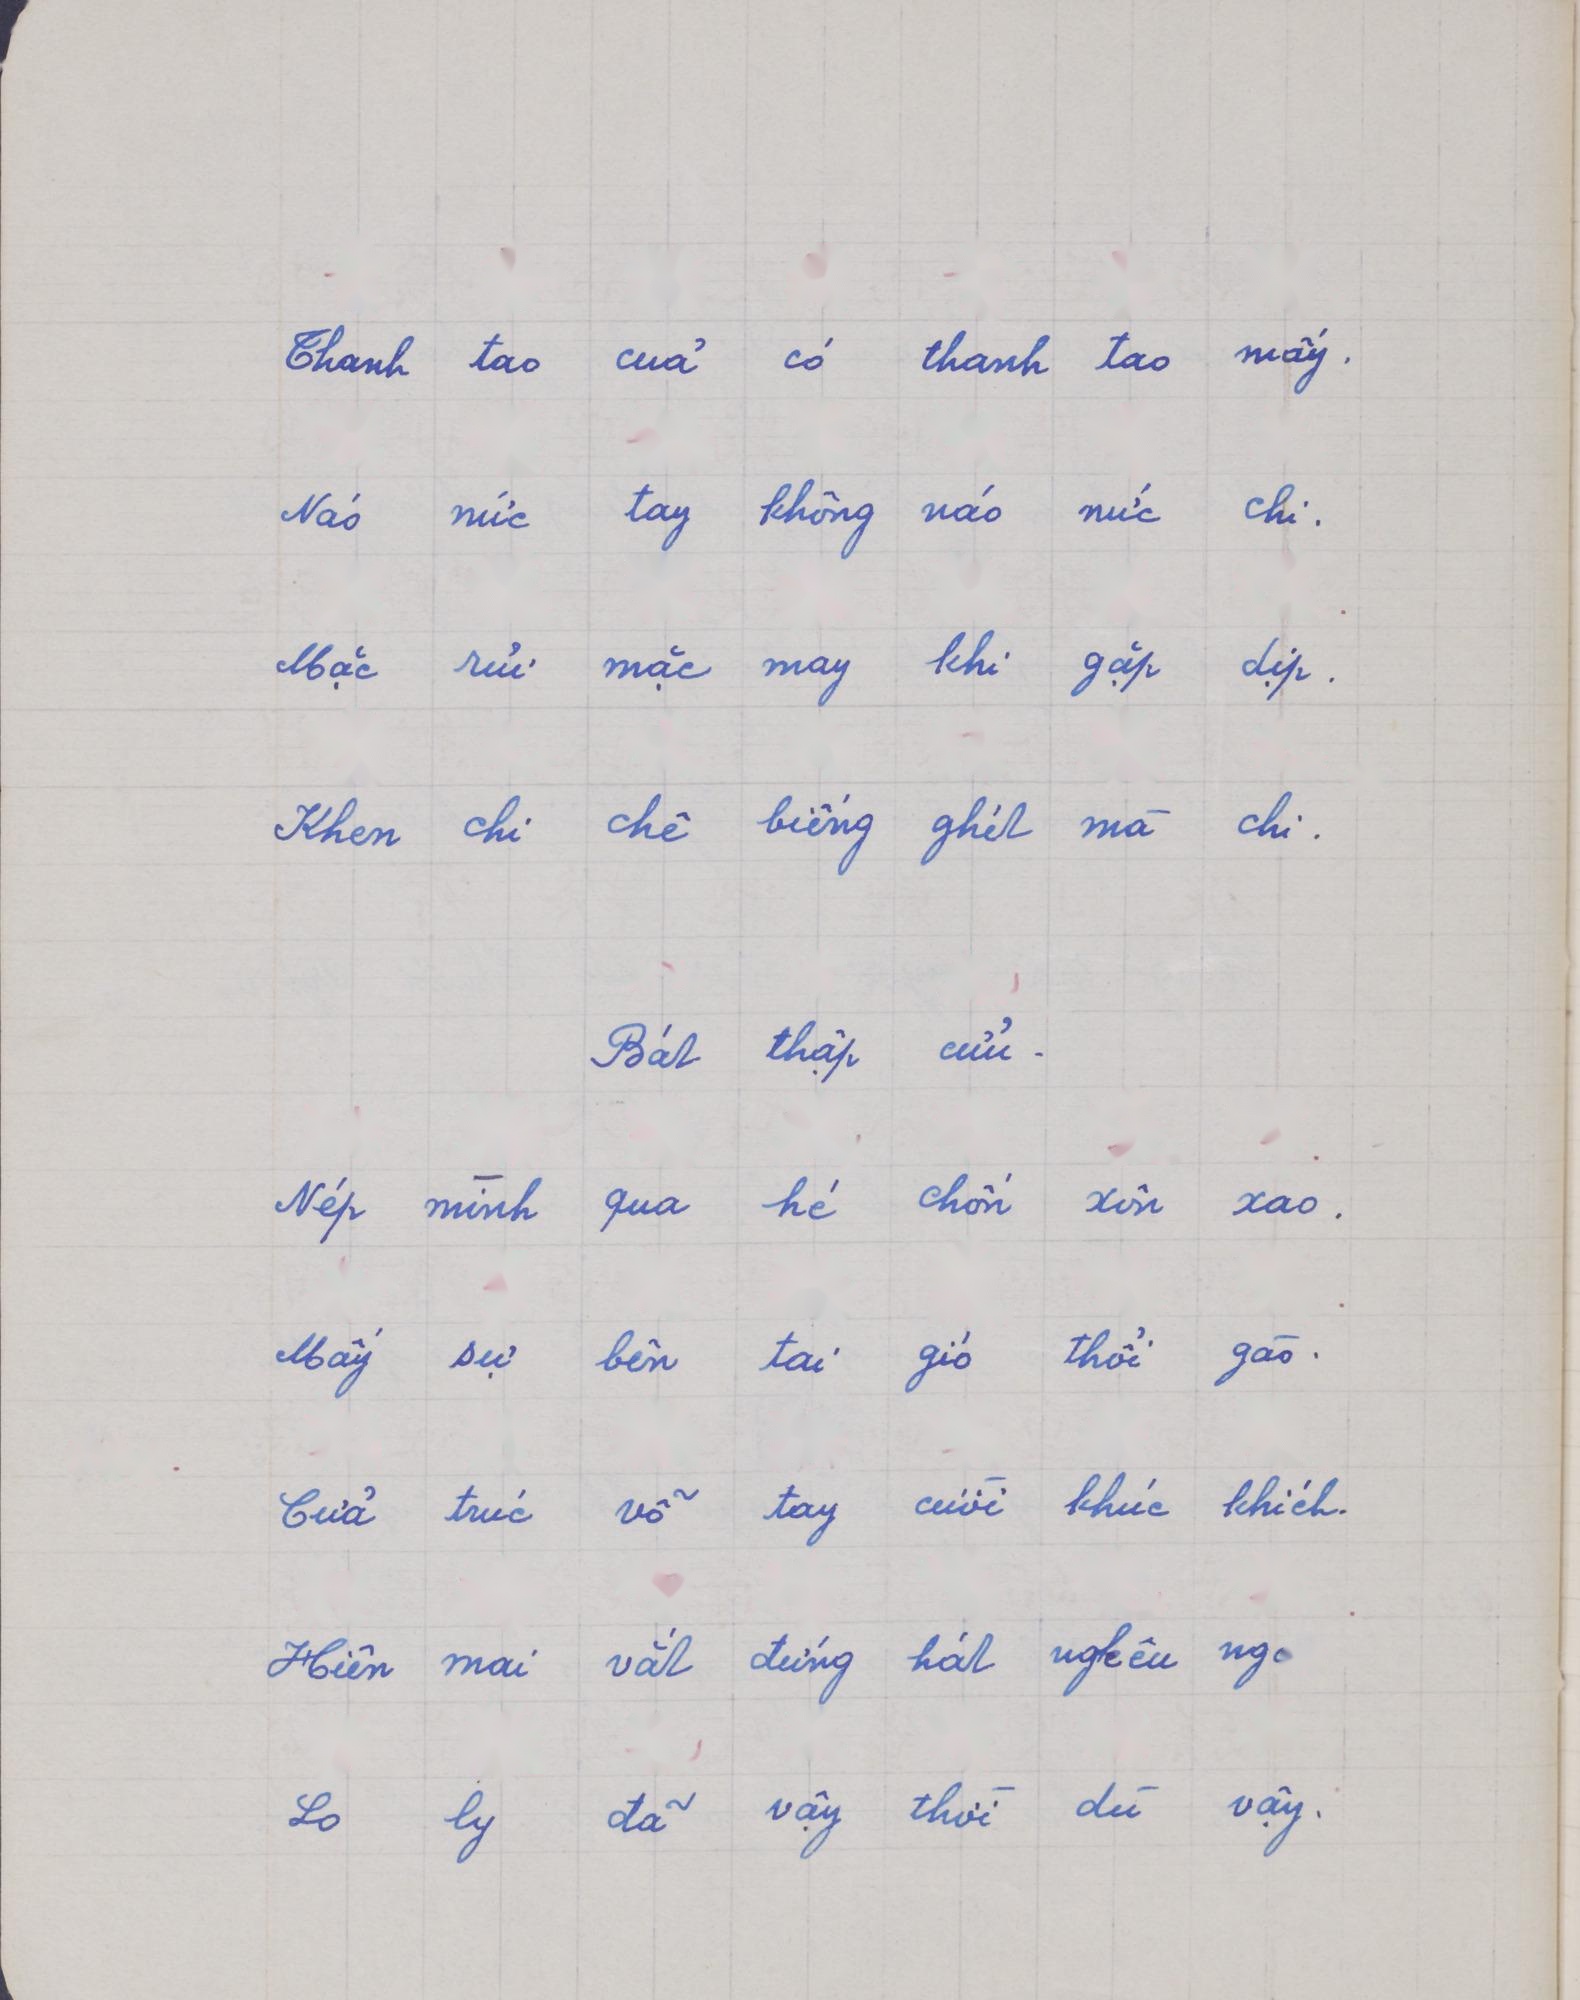 Thanh tao của có thanh tao mấy.
Náo nức tay không náo nức chi.
Mặc rủi mặc may khi gặp dịp.
Khen chi chê biếng ghét mà chi.
Bát thập cửu.
Nép mình qua hé chốn xôn xao.
Mấy sự bên tai gió thổi gào.
Cửa trúc vỗ tay cười khúc khích.
Hiên mai vắt đứng hát nghêu
Lo ly đã vậy thời dù vậy.